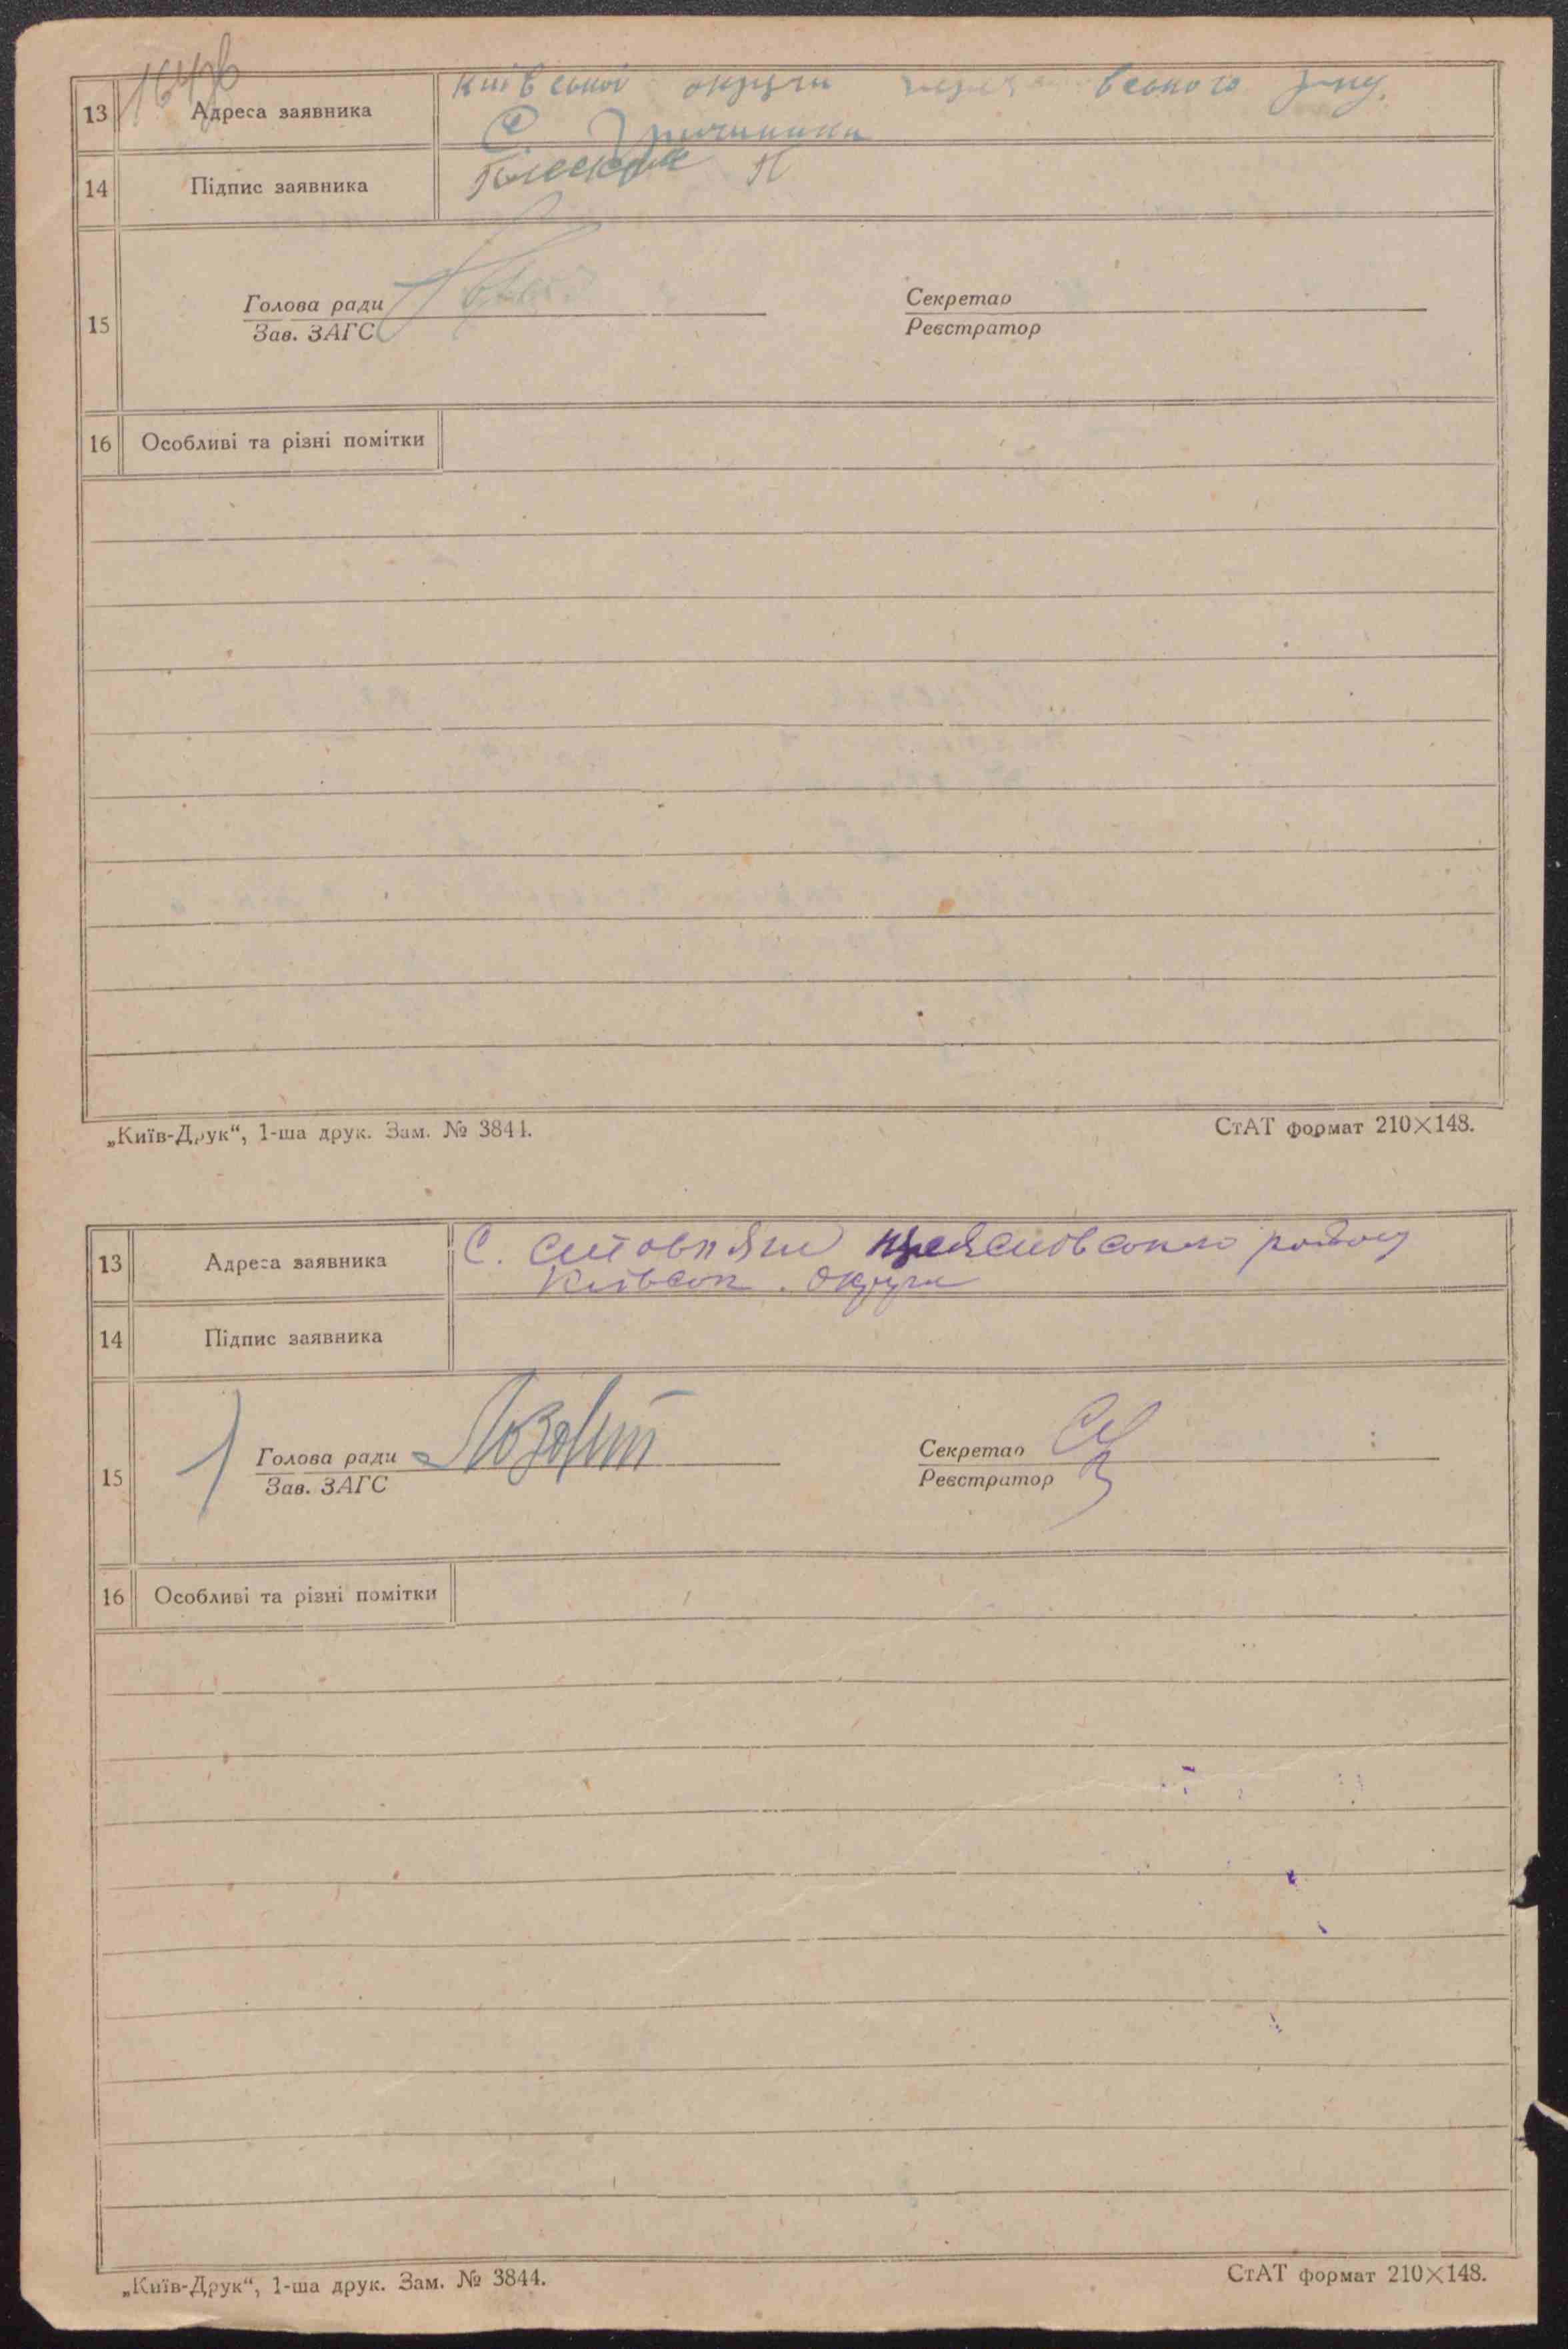 13 Адреса заявника Київської округи
С.
14 Підпис заявника П
15 Голова ради Секретар
Зав. ЗАГС Реєстратор
16 Особливі та різні помітки
„Київ-Друк“, 1-ша друк. Зам. № 3844. СтАТ формат 210×148.
13 Адреса заявника С. Ситовняги району
Київськ. округи
14 Підпис заявника
15 Голова ради Лозовий Секретар
Зав. ЗАГС Реєстратор
16 Особливі та різні помітки
„Київ-Друк“, 1-ша друк. Зам. № 3844. СтАТ формат 210×148.